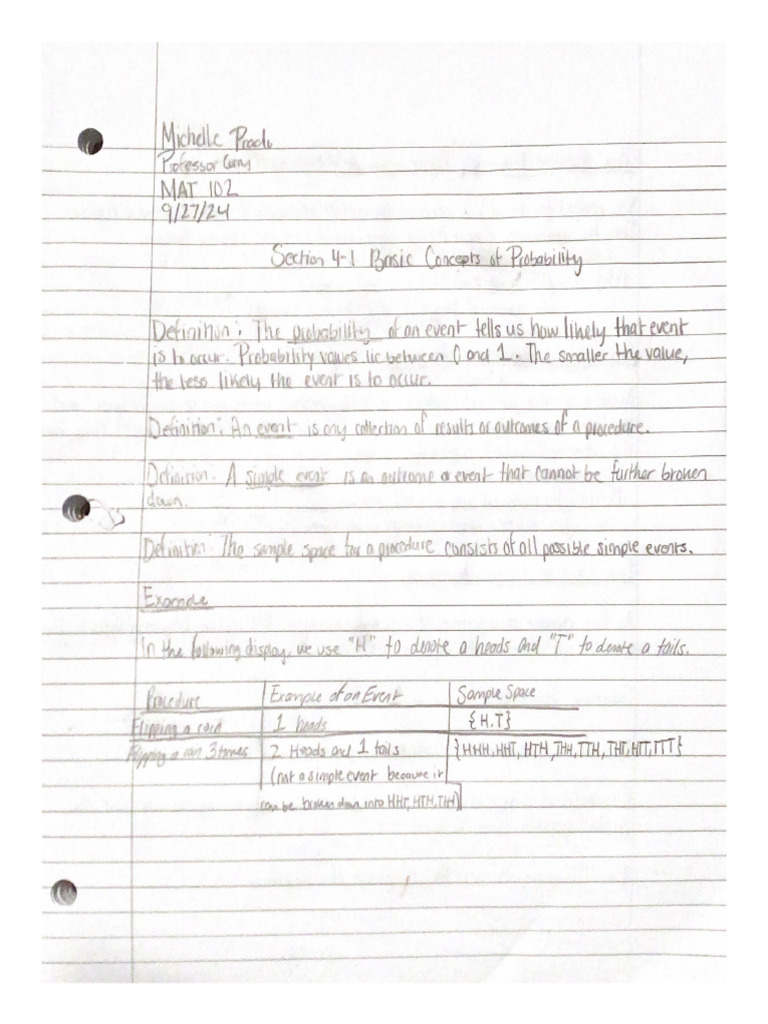 Michelle Prado
Professor Curry
MAT 102
9/27/24
Section 4-1 Basic Concepts of Probability
Definition: The probability of an event tells us how likely that event
is to occur. Probability values lie between 0 and 1. The smaller the value,
the less likely the event is to occur.
Definition: An event is any collection of results or outcomes of a procedure.
Definition: A simple event is an outcome or event that cannot be further broken
down.
Definition: The sample space for a procedure consists of all possible simple events.
Example
In the following display, we use "H" to denote a heads and "T" to denote a tails.
Procedure Example of an Event Sample Space
Flipping a coin 1 heads {H,T}
Flipping a coin 3 times 2 Heads and 1 tails {HHH, HHT, HTH, THH, TTH, THT, HTT, TTT}
(not a simple event because it
can be broken down into HHT, HTH, THH)